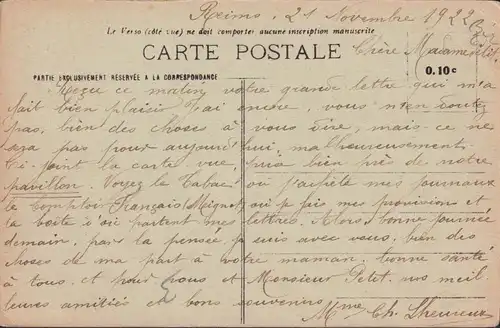 Reims, 21 Novembre 1922
Le Verso (côté vue) ne doit comporter aucune inscription manuscrite
CARTE POSTALE
Chère Madame
0.10c
PARTIE EXCLUSIVEMENT RÉSERVÉE A LA CORRESPONDANCE
Reçue ce matin votre grande lettre qui m'a
fait bien plaisir J'ai encore, vous n'en doutez
pas, bien des choses à vous dire, mais ce ne
sera pas pour aujourd'hui, malheureusement.
Ci-joint la carte vue, prise bien près de notre
pavillon. Voyez le Tabac où j'achète mes journaux
le Comptoir Français Mignot, où je fais mes provisions et
la boîte d'où partent mes lettres. Alors, bonne journée
demain, par la pensée, je suis avec vous, bien des
choses de ma part à votre maman, bonne santé
à tous, et pour vous et Monsieur Petit, nos meil
leures amitiés et bons souvenirs
Mme Ch. Lheureux